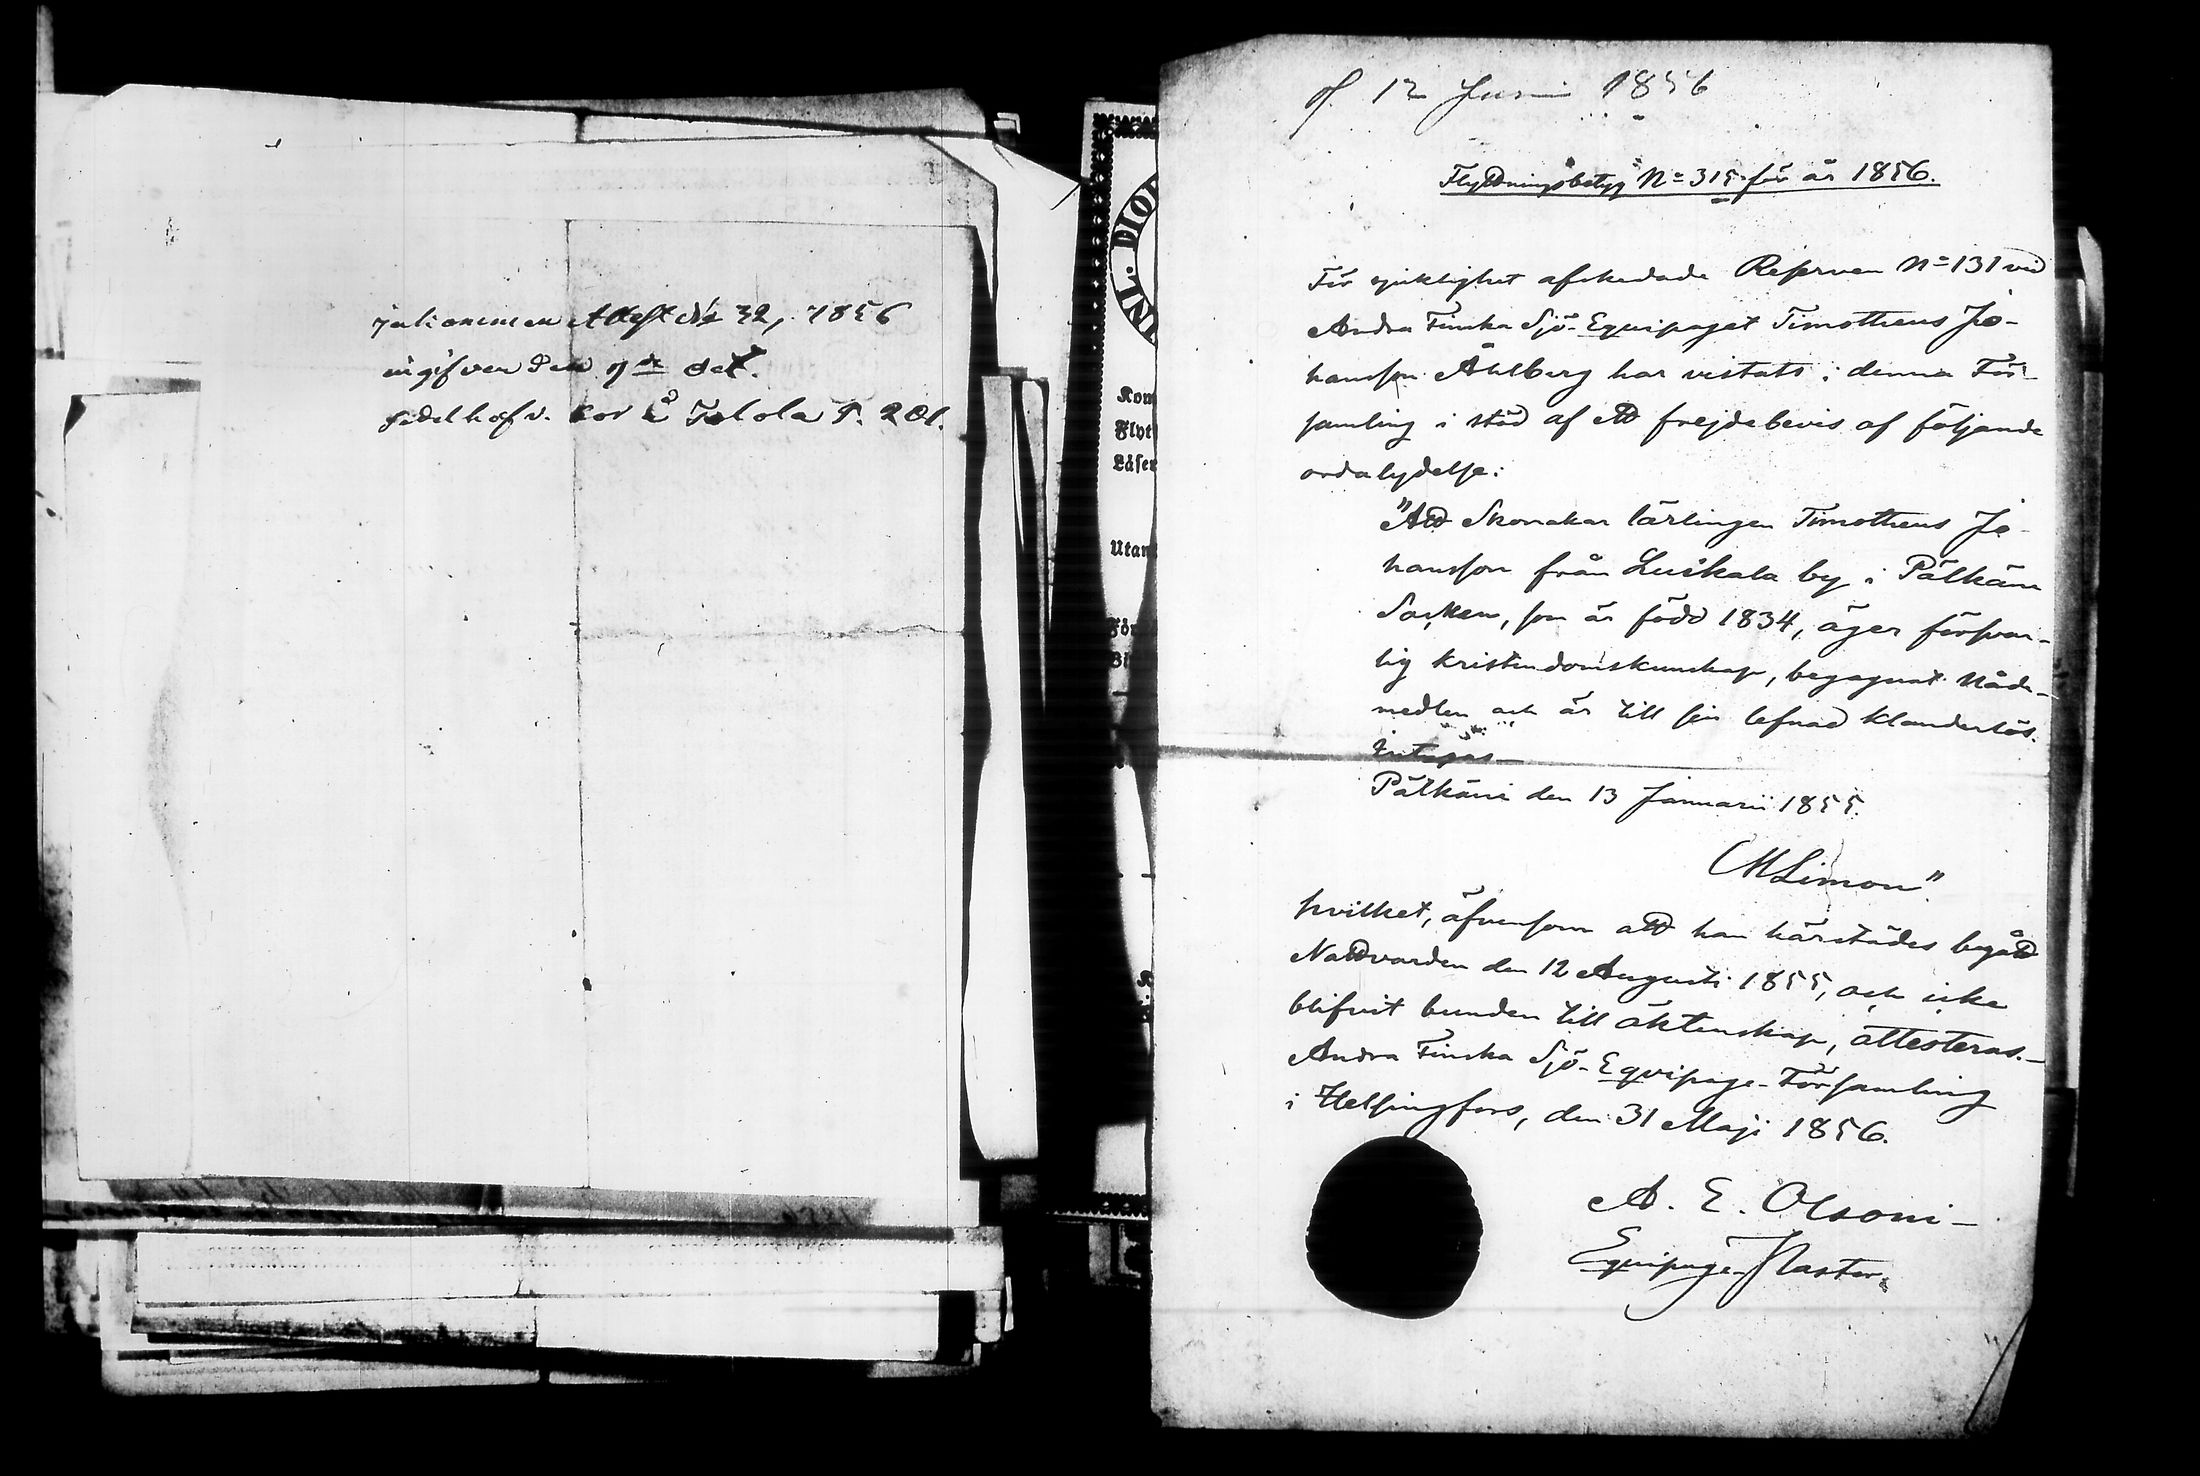 inkommen Attest No 32, 1856
ingifven den 9de det.
bor å Tolola P. 201.
d. 12 Juni 1856
Flyttningsbetyg No 315 för år 1856.
För sjuklighet afskedade Reserven No 131 vid
Andra Finska Sjö-Equipaget Timotheus Jo-
hansson Åhlberg har vistats i denna För-
samling i stöd af ett frejdebevis af följande
ordalydelse:
"Att Skomakar lärlingen Timotheus Jo-
hansson från Luikala by i Pälkäne
Socken, som är född 1834, äger försvar-
lig kristendomskunskap, begagnat Nåde-
medlen och är till sin lefnad klanderlös.
intygas—
Pälkäne den 13 Januarii 1855.
CM Limon"
hvilket, äfvensom att han härstädes begått
Nattvarden den 12 Augusti 1855, och icke
blifvit bunden till äktenskap, attesteras.—
Andra Finska Sjö-Eqvipage-Församling
i Helsingfors, den 31 Maji 1856.
A. E. Olsoni—
Equipage-Pastor.
NL. DION
Kom
Flyt
Läser
Utan
För